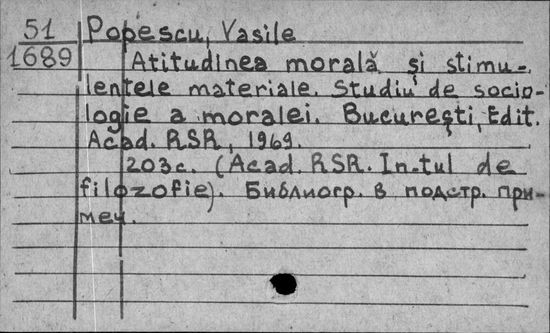 51 Popescu, Vasile
1689 Atitudinea morală și stimu-
lentele materiale. Studiu de socio-
logie a moralei. București, Edit.
Acad. RSR, 1969.
203 с. (Acad. RSR. In-tul de
filozofie). Библиогр. в подстр. при-
меч.